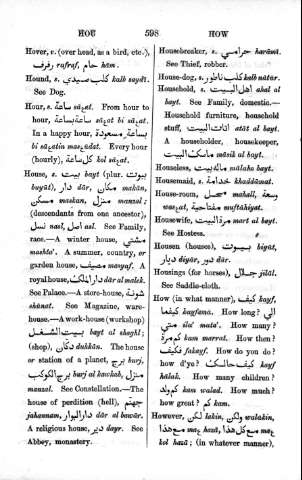 HOU 598 HOW
Hover, v. (over head, as a bird, etc.),
رفرف rafraf, حام ḥām.
Hound, s. كلب صيدي kalb ṣaydī.
See Dog.
Hour, s. ساعة sāʒat. From hour to
hour, ساعة بساعة sāʒat bi sāʒat.
In a happy hour, بساعة مسعودة
bi sāʒatin masʒūdat. Every hour
(hourly), كل ساعة kol sāʒat.
House, s. بيت bayt (plur. بيوت
buyūt), دار dār, مكان makān,
مسكن maskan, منزل manzal;
(descendants from one ancestor),
نسل nasl, اصل asl. See Family,
race.—A winter house, مشتي
mashta'. A summer, country, or
garden house, مصيف maṣyaf. A
royal house, دار الملك dār al malek.
See Palace.—A store-house, شونة
shūnat. See Magazine, ware-
house.—A work-house (workshop)
بيت الشغل bayt al shaghl;
(shop), دكان dukhān. The house
or station of a planet, برج burj,
برج الكوكب burj al kawkab, منزل
manzel. See Constellation.—The
house of perdition (hell), جهنم
jahannam, دار البوار dār al bawār.
A religious house, دير dayr. See
Abbey, monastery.
Housebreaker, s. حرامي ḥarāmī.
See Thief, robber.
House-dog, s. كلب ناطور kalb nāṭūr.
Household, s. اهل البيت ahal al
bayt. See Family, domestic.—
Household furniture, household
stuff, اثاث البيت atāt al bayt.
A householder, housekeeper,
ماسك البيت māsik al bayt.
Houseless, بلا بيت malaho bayt.
Housemaid, s. خدامة khaddāmat.
House-room, s. محل maḥall, وسعة
wasʒat, مفتاحية muftāḥiyat.
Housewife, مرة البيت mart al bayt.
See Hostess.
Housen (houses), بيوت biyūt,
دور dūr, ديار diyār.
Housings (for horses), جلال jilāl.
See Saddle-cloth.
How (in what manner), كيف kayf,
كيفما kayfama. How long? الى
متي ila' mata'. How many?
كم مرة kam marrat. How then?
فكيف fakayf. How do you do?
how d'ye do? كيف حالك kayf
ḥālak. How many children?
كم ولد kam walad. How much?
how great? كم kam.
However, لكن lakin, ولكن walakin,
مع كل هذا maʒ haẓā, مع هذا maʒ
kol haẓā; (in whatever manner),